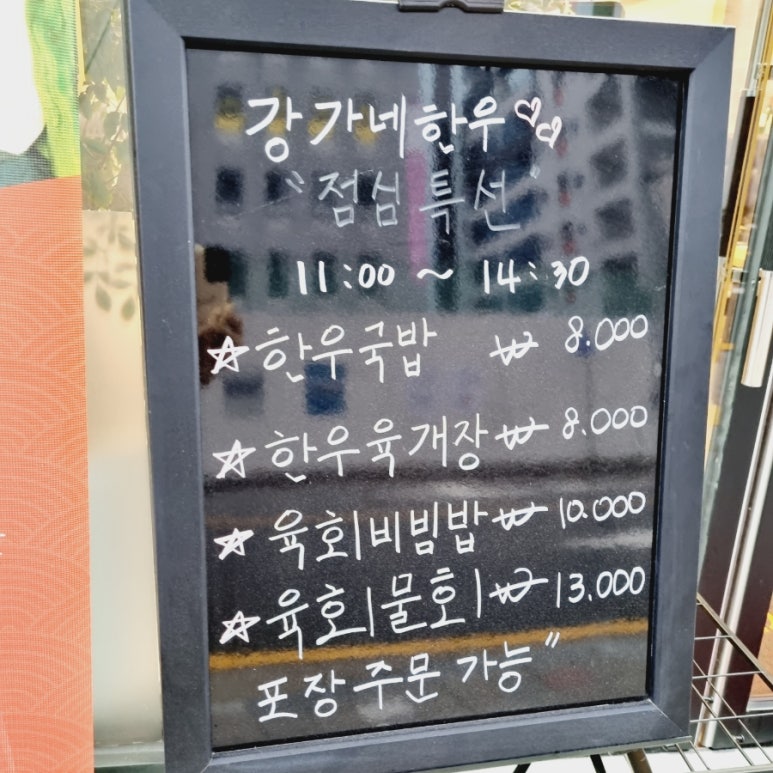 강가네한우♡♡
"점심특선"
11:00 ~ 14:30
☆한우국밥 ₩ 8.000
☆한우육개장 ₩ 8.000
☆육회비빔밥 ₩ 10.000
☆육회물회 ₩ 13.000
포장주문 가능"